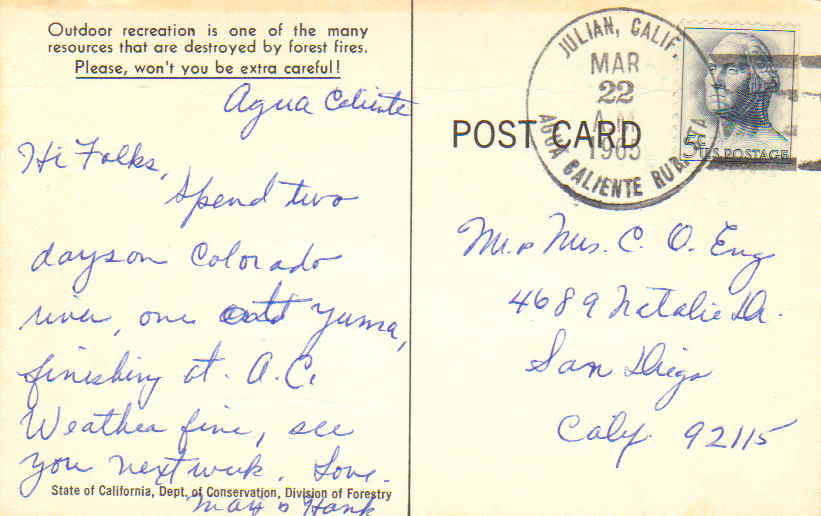 Outdoor recreation is one of the many
resources that are destroyed by forest fires.
Please, won't you be extra careful!
Agua Caliente
Hi Folks,
Spend two
days on Colorado
river, one at Yuma,
finishing at A.C.
Weather fine, see
you next week. Love.
May & Hank
State of California, Dept. of Conservation, Division of Forestry
POST CARD
JULIAN, CALIF.
MAR
22
1965
AGUA CALIENTE RUR. STA
5c
U.S. POSTAGE
M. & Mrs. C. O. Eng
4689 Natalie Dr.
San Diego
Calif. 92115